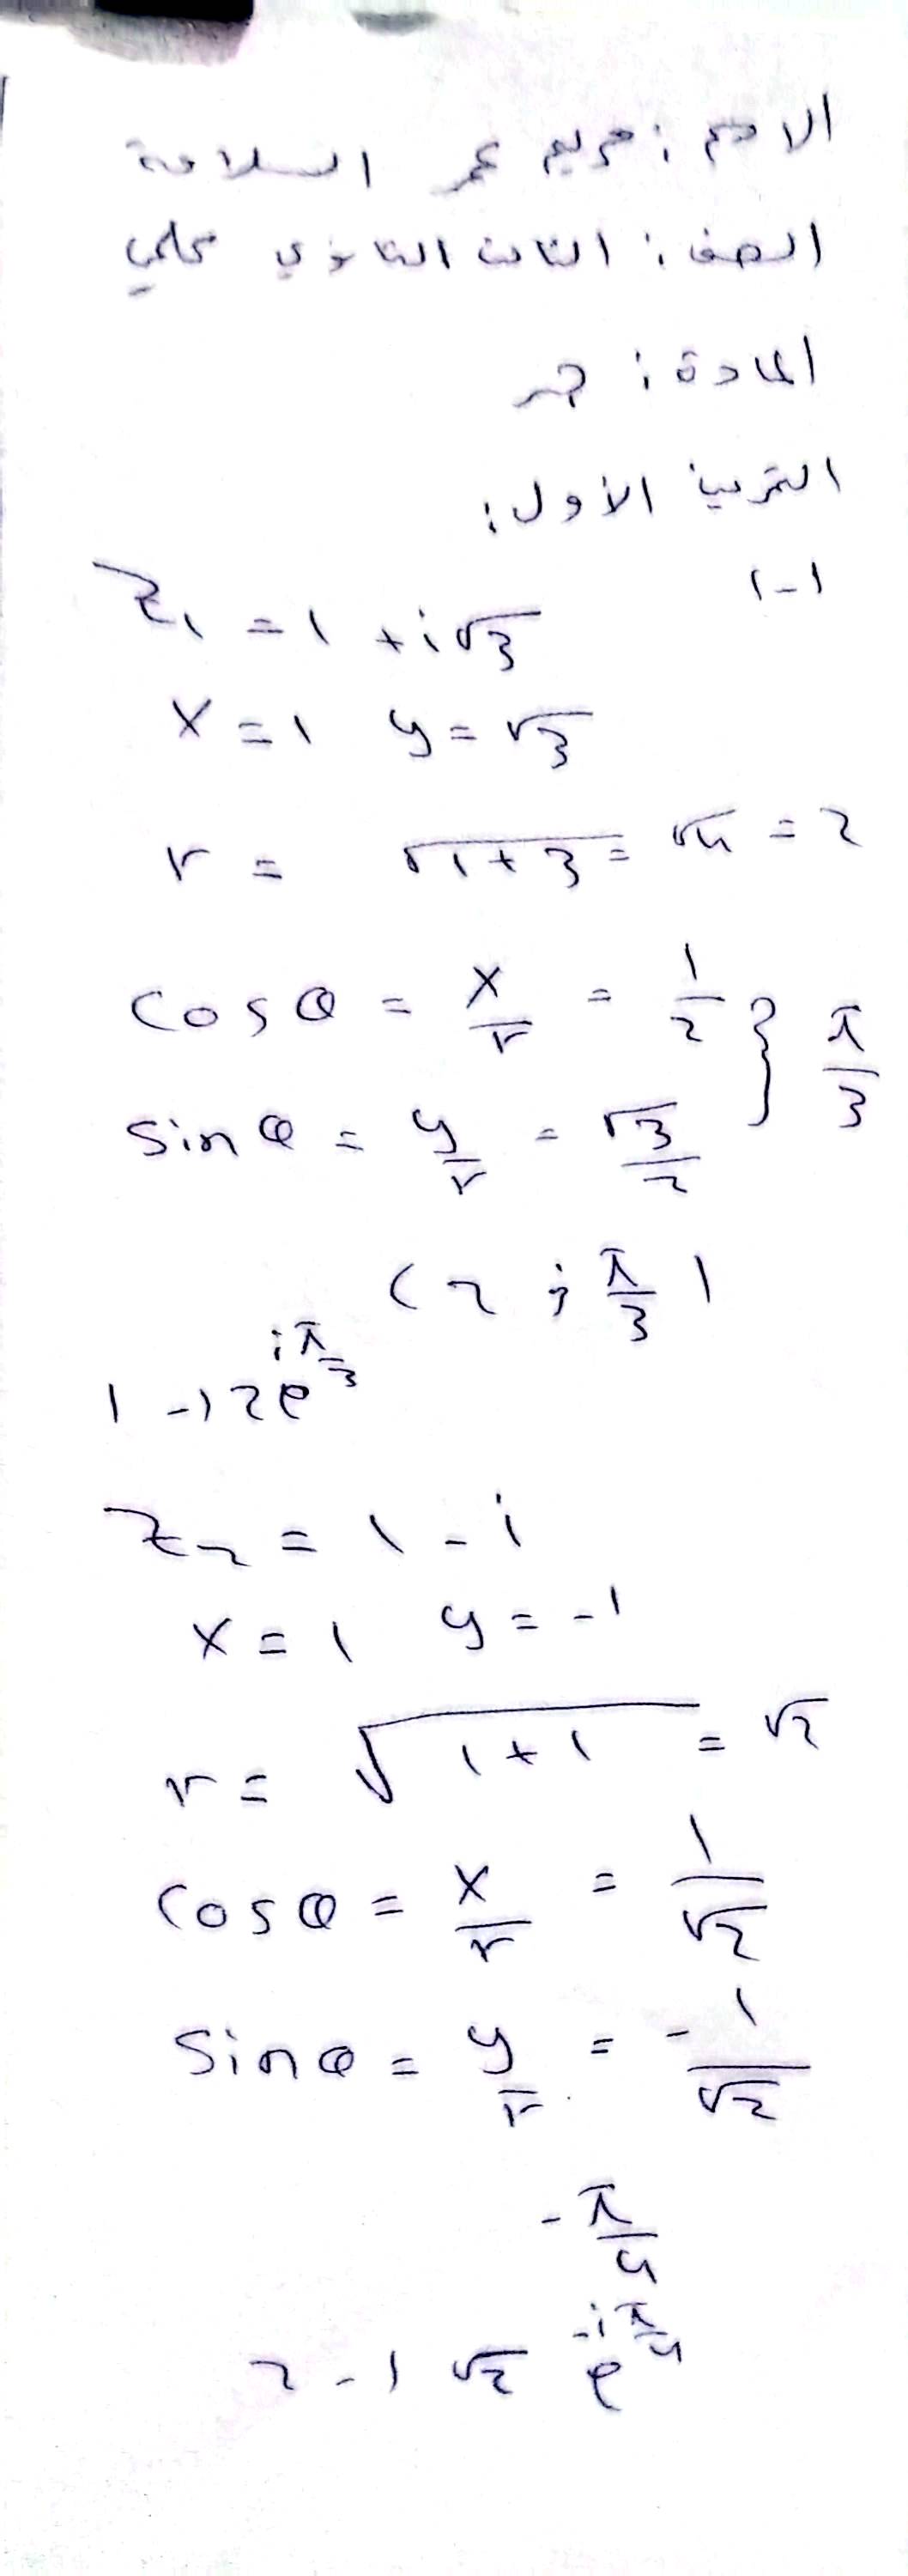 الاسم : مريم عمر السلامة
الصف : الثالث الثانوي علمي
المادة : جبر
التمرين الأول :
1-1
Z₁ = 1 + i√3
x = 1 y = √3
r = √1+3 = √4 = 2
cos θ = x/r = 1/2
sin θ = y/r = √3/2 } π/3
(2 ; π/3)
1 -) 2e^iπ/3
Z₂ = 1 - i
x = 1 y = -1
r = √1+1 = √2
cos θ = x/r = 1/√2
sin θ = y/r = -1/√2
-π/4
2 -) √2 e^-iπ/4